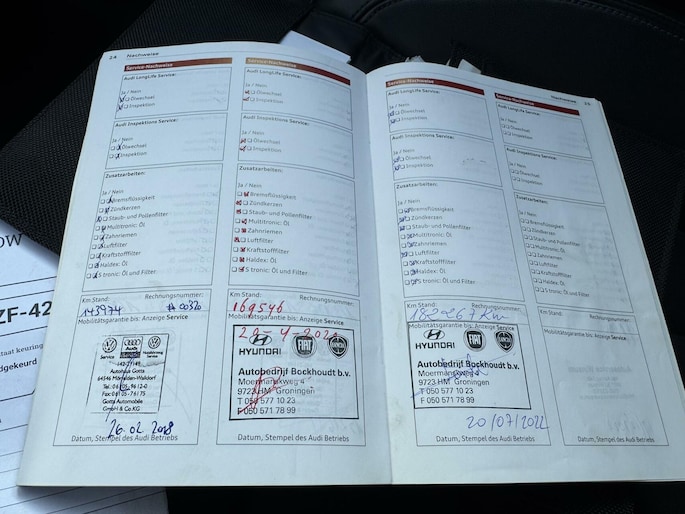 24 Nachweise
Service-Nachweise
Audi LongLife Service:
Ja / Nein
Ölwechsel
Inspektion
Audi Inspektions Service:
Ja / Nein
Ölwechsel
Inspektion
Zusatzarbeiten:
Ja / Nein
Bremsflüssigkeit
Zündkerzen
Staub- und Pollenfilter
Multitronic: Öl
Zahnriemen
Luftfilter
Kraftstofffilter
Haldex: Öl
S tronic: Öl und Filter
Km Stand: Rechnungsnummer:
143974 # 00320
Mobilitätsgarantie bis: Anzeige Service
Service
Audi
Service
Autohaus Gotta
64546 Mörfelden-Walldorf
Gotta Automobile
GmbH & Co KG
26.02.2018
Datum, Stempel des Audi Betriebs
Service-Nachweise
Audi LongLife Service:
Ja / Nein
Ölwechsel
Inspektion
Audi Inspektions Service:
Ja / Nein
Ölwechsel
Inspektion
Zusatzarbeiten:
Ja / Nein
Bremsflüssigkeit
Zündkerzen
Staub- und Pollenfilter
Multitronic: Öl
Zahnriemen
Luftfilter
Kraftstofffilter
Haldex: Öl
S tronic: Öl und Filter
Km Stand: Rechnungsnummer:
169546
Mobilitätsgarantie bis: Anzeige Service
HYUNDAI FIAT
Autobedrijf Bockhoudt b.v.
Moermanskweg 4
9723 HM Groningen
T 050 577 10 23
F 050 571 78 99
Datum, Stempel des Audi Betriebs
Service-Nachweise
Audi LongLife Service:
Ja / Nein
Ölwechsel
Inspektion
Audi Inspektions Service:
Ja / Nein
Ölwechsel
Inspektion
Zusatzarbeiten:
Ja / Nein
Bremsflüssigkeit
Zündkerzen
Staub- und Pollenfilter
Multitronic: Öl
Zahnriemen
Luftfilter
Kraftstofffilter
Haldex: Öl
S tronic: Öl und Filter
Km Stand: Rechnungsnummer:
182267 Km
Mobilitätsgarantie bis: Anzeige Service
HYUNDAI FIAT
Autobedrijf Bockhoudt b.v.
9723 HM Groningen
T 050 577 10 23
F 050 571 78 99
20/07/2022
Datum, Stempel des Audi Betriebs
Nachweise 25
Service-Nachweise
Audi LongLife Service:
Ja / Nein
Ölwechsel
Inspektion
Audi Inspektions Service:
Ja / Nein
Ölwechsel
Inspektion
Zusatzarbeiten:
Ja / Nein
Bremsflüssigkeit
Zündkerzen
Staub- und Pollenfilter
Multitronic: Öl
Zahnriemen
Luftfilter
Kraftstofffilter
Haldex: Öl
S tronic: Öl und Filter
Km Stand: Rechnungsnummer:
Mobilitätsgarantie bis: Anzeige Service
Datum, Stempel des Audi Betriebs
OW
ZF-42